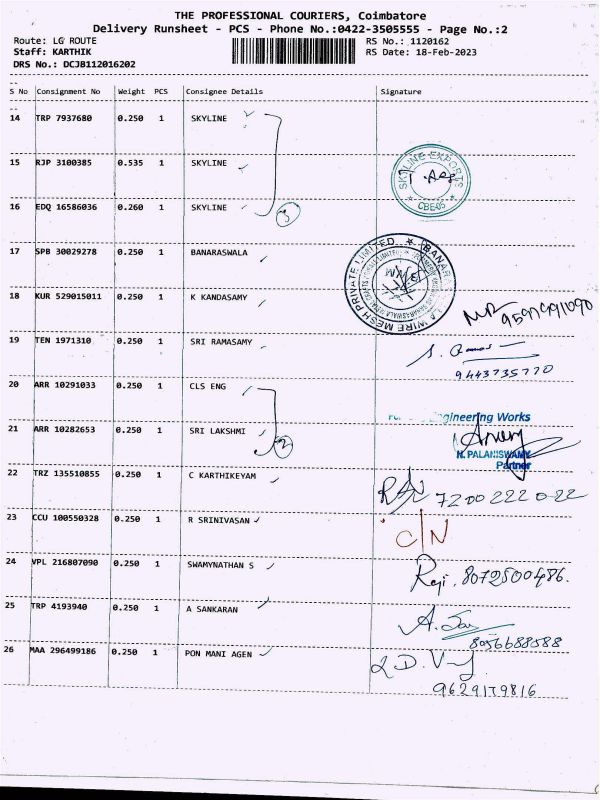 THE PROFESSIONAL COURIERS, Coimbatore
Delivery Runsheet - PCS - Phone No.:0422-3505555 - Page No.:2
Route: LG ROUTE RS No.: 1120162
Staff: KARTHIK RS Date: 18-Feb-2023
DRS No.: DCJB112016202
S No Consignment No Weight PCS Consignee Details Signature
14 TRP 7937680 0.250 1 SKYLINE
15 RJP 3100385 0.535 1 SKYLINE
SKYLINE EXPORTS
CBE-05
16 EDQ 16586036 0.260 1 SKYLINE 3
17 SPB 30029278 0.250 1 BANARASWALA
18 KUR 529015011 0.250 1 K KANDASAMY
19 TEN 1971310 0.250 1 SRI RAMASAMY
9443735770
20 ARR 10291033 0.250 1 CLS ENG
gineering Works
21 ARR 10282653 0.250 1 SRI LAKSHMI 2
N. PALANISWAMY
Partner
22 TRZ 135510855 0.250 1 C KARTHIKEYAM
7200222022
23 CCU 100550328 0.250 1 R SRINIVASAN C/N
24 VPL 216807090 0.250 1 SWAMYNATHAN S
Raji. 8072500486.
25 TRP 4193940 0.250 1 A SANKARAN
8056688588
26 MAA 296499186 0.250 1 PON MANI AGEN
9629179816